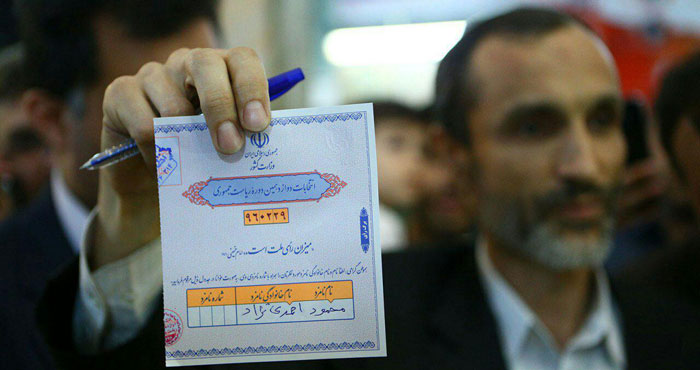 جمهوری اسلامی ایران
وزارت کشور
انتخابات دوازدهمین دوره ریاست جمهوری
۹۶۰۲۲۹
«میزان رأی ملت است.» امام خمینی (ره)
نام نامزد نام خانوادگی نامزد شماره نامزد
محمود احمدی نژاد